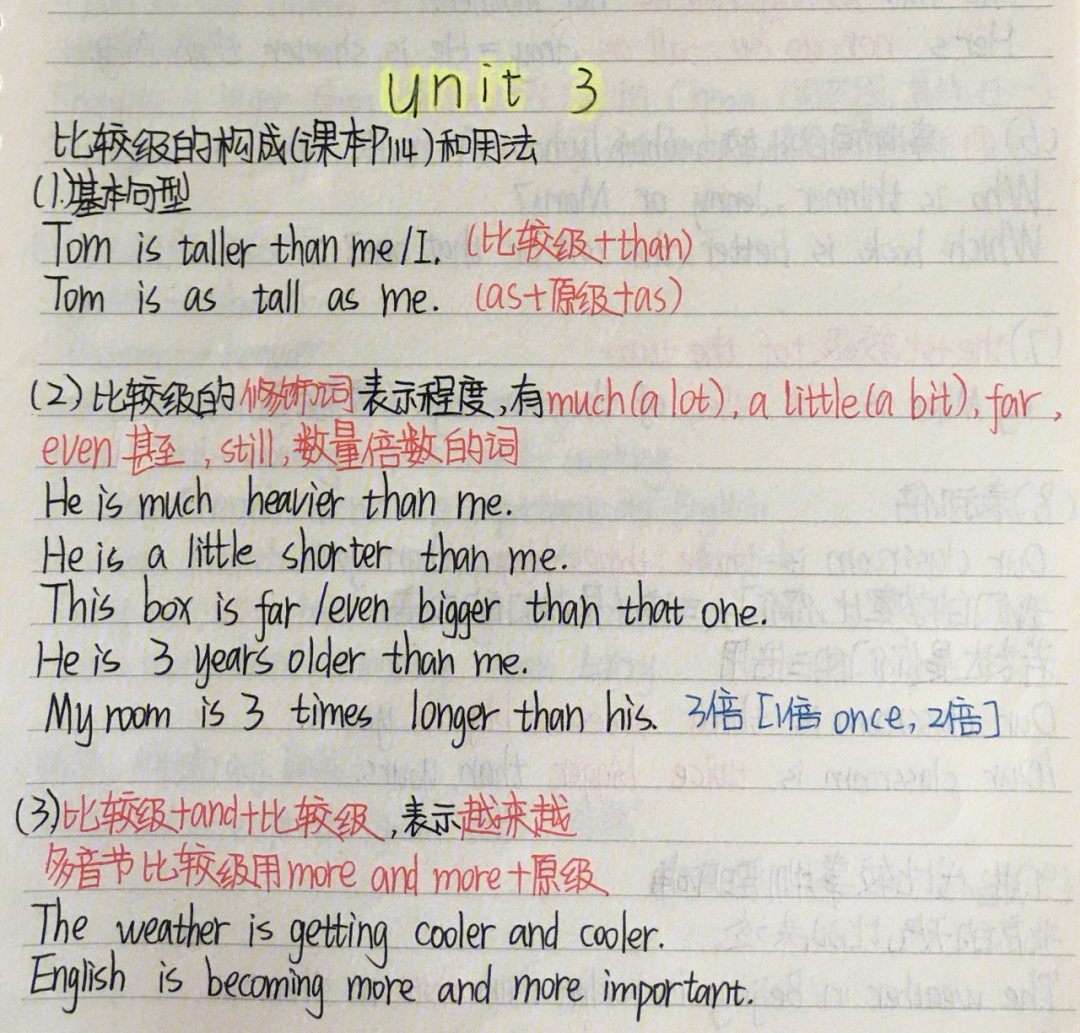 unit 3
比较级的构成(课本P114)和用法
(1)基本句型
Tom is taller than me/I. (比较级+than)
Tom is as tall as me. (as+原级+as)
(2)比较级的修饰词表示程度,有much(a lot), a little(a bit), far,
even甚至, still, 数量倍数的词
He is much heavier than me.
He is a little shorter than me.
This box is far /even bigger than that one.
He is 3 years older than me.
My room is 3 times longer than his. 3倍 [1倍 once, 2倍]
(3)比较级+and+比较级,表示越来越
多音节比较级用more and more+原级
The weather is getting cooler and cooler.
English is becoming more and more important.